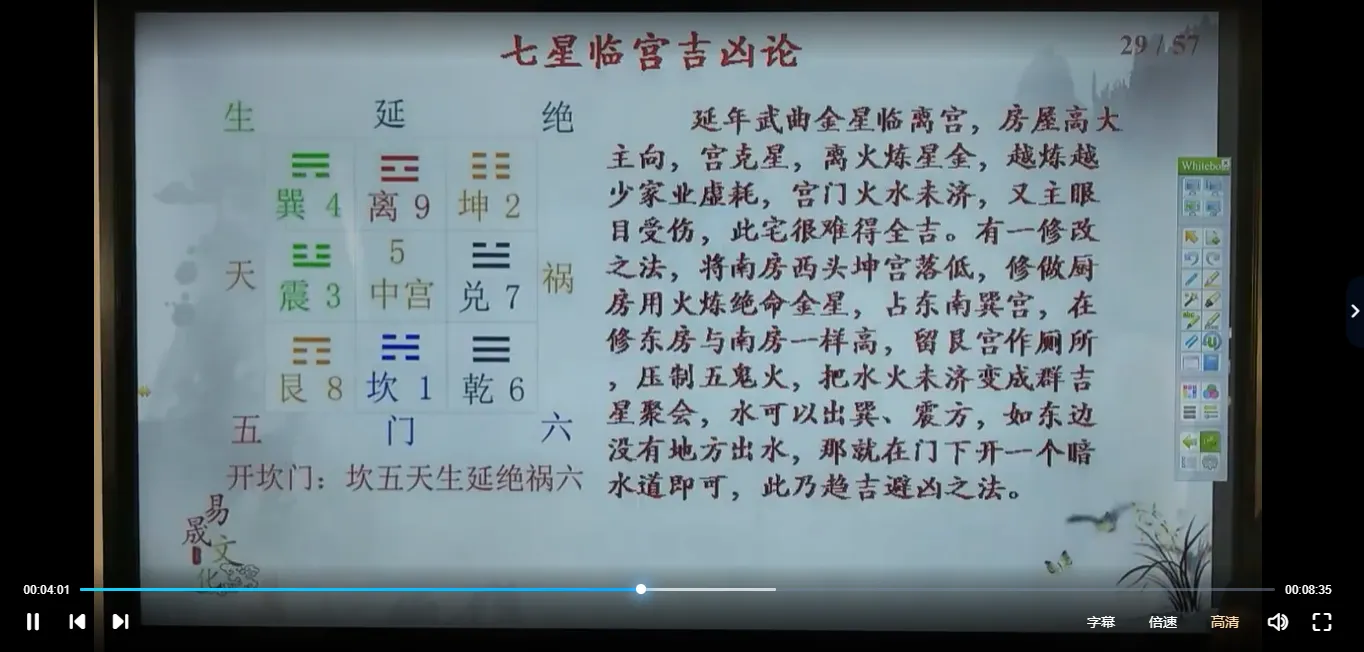 七星临宫吉凶论
29 / 57
生 延 绝
巽 4 离 9 坤 2
天 祸
震 3 5 中宫 兑 7
艮 8 坎 1 乾 6
五 门 六
开坎门：坎五天生延绝祸六
延年武曲金星临离宫，房屋高大
主向，宫克星，离火炼星金，越炼越
少家业虚耗，宫门火水未济，又主眼
目受伤，此宅很难得全吉。有一修改
之法，将南房西头坤宫落低，修做厨
房用火炼绝命金星，占东南巽宫，在
修东房与南房一样高，留艮宫作厕所
，压制五鬼火，把水火未济变成群吉
星聚会，水可以出巽、震方，如东边
没有地方出水，那就在门下开一个暗
水道即可，此乃趋吉避凶之法。
易晟文化
Whitebo
00:04:01
00:08:35
字幕 倍速 高清